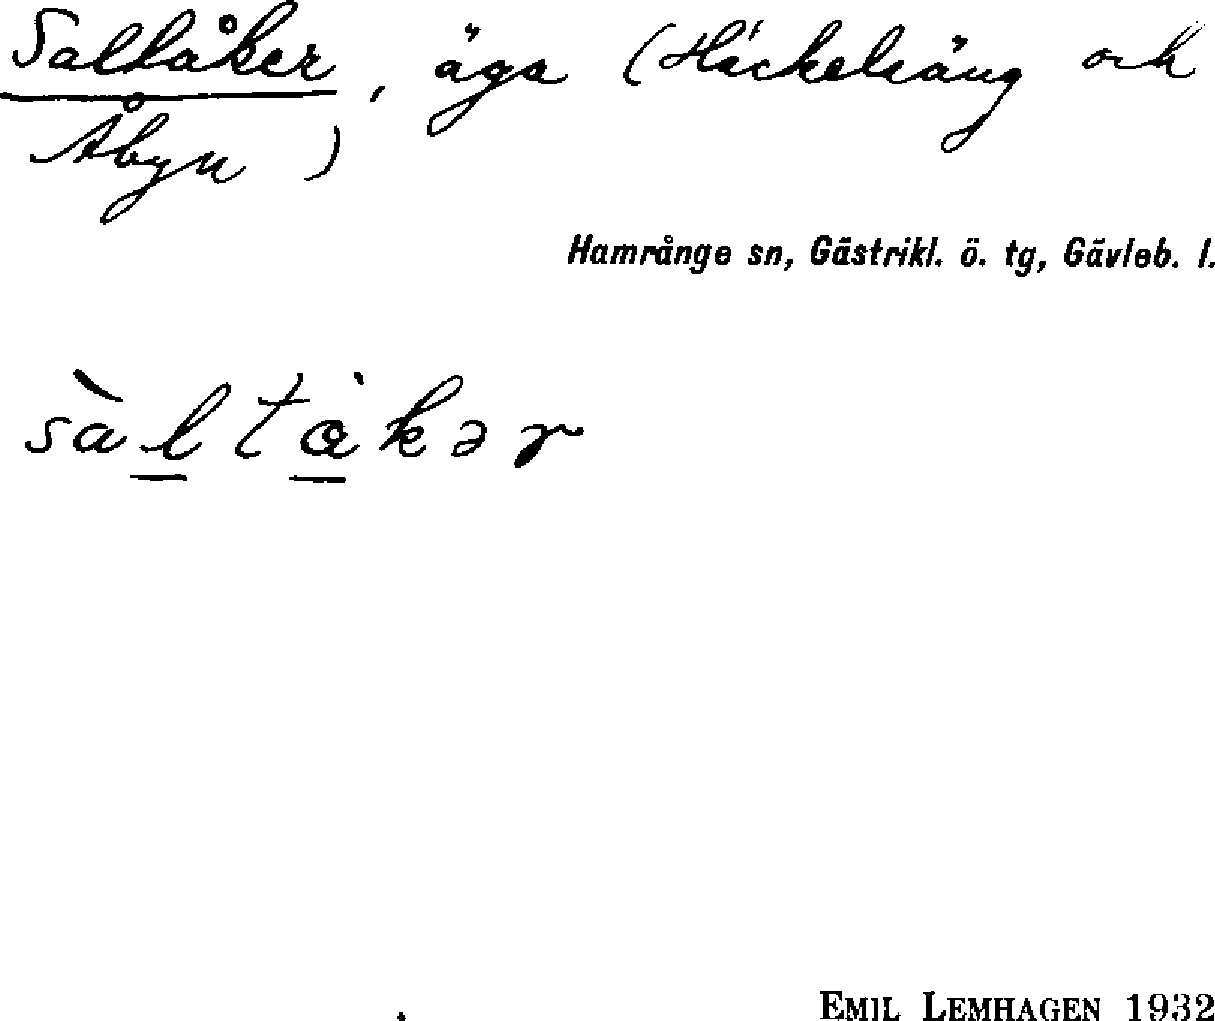 Saltåker, äga (Häckelsäng och
Åbyn)
Hamrånge sn, Gästrikl. ö. tg, Gävleb. l.
sàltåkər
EMIL LEMHAGEN 1932